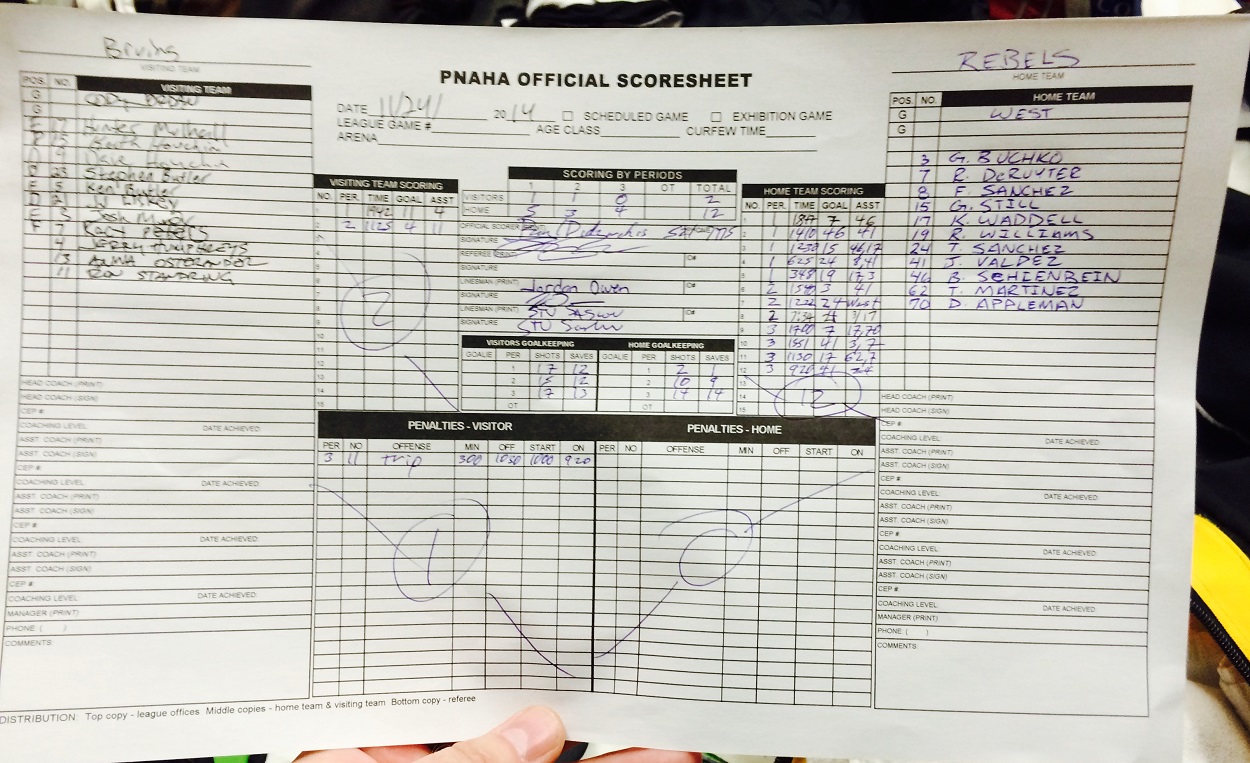 Bruins
VISITING TEAM
REBELS
HOME TEAM
PNAHA OFFICIAL SCORESHEET
DATE 11/24/ 2014 SCHEDULED GAME EXHIBITION GAME
LEAGUE GAME # AGE CLASS CURFEW TIME
ARENA
POS. NO. VISITING TEAM
G
G
F 17 Hunter Mulhall
15
D 9
D 23 Stephen Butler
F 5 Ken Butler
D 21
F 3 Josh
F 7 Peters
4 JERRY HUMPHREYS
13 ANNA OSTERANDER
11 RON STANDRING
HEAD COACH (PRINT)
HEAD COACH (SIGN)
CEP #
COACHING LEVEL DATE ACHIEVED:
ASST. COACH (PRINT)
ASST. COACH (SIGN)
CEP #
COACHING LEVEL DATE ACHIEVED:
ASST. COACH (PRINT)
ASST. COACH (SIGN)
CEP #
COACHING LEVEL DATE ACHIEVED:
ASST. COACH (PRINT)
ASST. COACH (SIGN)
CEP #
COACHING LEVEL DATE ACHIEVED:
MANAGER (PRINT)
PHONE ( )
COMMENTS:
VISITING TEAM SCORING
NO. PER. TIME GOAL ASST
1 1942 11 4
2 2 1125 4 11
3
4
5
6
7
8
9
10
11
12
13
14
15
2
SCORING BY PERIODS
1 2 3 OT TOTAL
VISITORS 1 1 0 2
HOME 5 3 4 12
OFFICIAL SCORER
SIGNATURE
REFEREE (PRINT)
SIGNATURE
LINESMAN (PRINT) Jordan Owen
SIGNATURE
LINESMAN (PRINT) STU
SIGNATURE STU
VISITORS GOALKEEPING HOME GOALKEEPING
GOALIE PER SHOTS SAVES GOALIE PER SHOTS SAVES
1 17 12 1 2 1
2 15 12 2 10 9
3 17 13 3 14 14
OT OT
HOME TEAM SCORING
NO. PER. TIME GOAL ASST
1 1 1847 7 46
2 1 1410 46 41
3 1 1230 15 46,17
4 1 625 24 8,41
5 1 348 19 17,3
6 2 1540 3 41
7 2 1222 24 West
8 2 3/17
9 3 1700 7 17,70
10 3 1551 41 3,7
11 3 1130 17 62,7
12 3 920 41 24
13
14
15
12
POS. NO. HOME TEAM
G WEST
G
3 G. BUCHKO
7 R. DERUYTER
8 F. SANCHEZ
15 G. STILL
17 K. WADDELL
19 R. WILLIAMS
24 T. SANCHEZ
41 J. VALDEZ
46 B. SCHIENBEIN
62 T. MARTINEZ
70 D. APPLEMAN
HEAD COACH (PRINT)
HEAD COACH (SIGN)
CEP #
COACHING LEVEL DATE ACHIEVED:
ASST. COACH (PRINT)
ASST. COACH (SIGN)
CEP #
COACHING LEVEL DATE ACHIEVED:
ASST. COACH (PRINT)
ASST. COACH (SIGN)
CEP #
COACHING LEVEL DATE ACHIEVED:
ASST. COACH (PRINT)
ASST. COACH (SIGN)
CEP #
COACHING LEVEL DATE ACHIEVED:
MANAGER (PRINT)
PHONE ( )
COMMENTS:
PENALTIES - VISITOR PENALTIES - HOME
PER NO OFFENSE MIN OFF START ON PER NO OFFENSE MIN OFF START ON
3 11 trip 300 1030 1000 920
1
0
DISTRIBUTION: Top copy - league offices Middle copies - home team & visiting team Bottom copy - referee